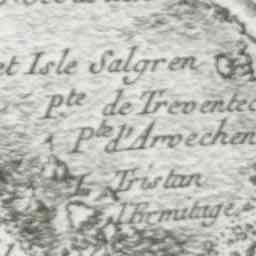 et Isle Salgren
Pte de Treventec
Pte d'Arvechen
I. Tristan
l'Ermitage